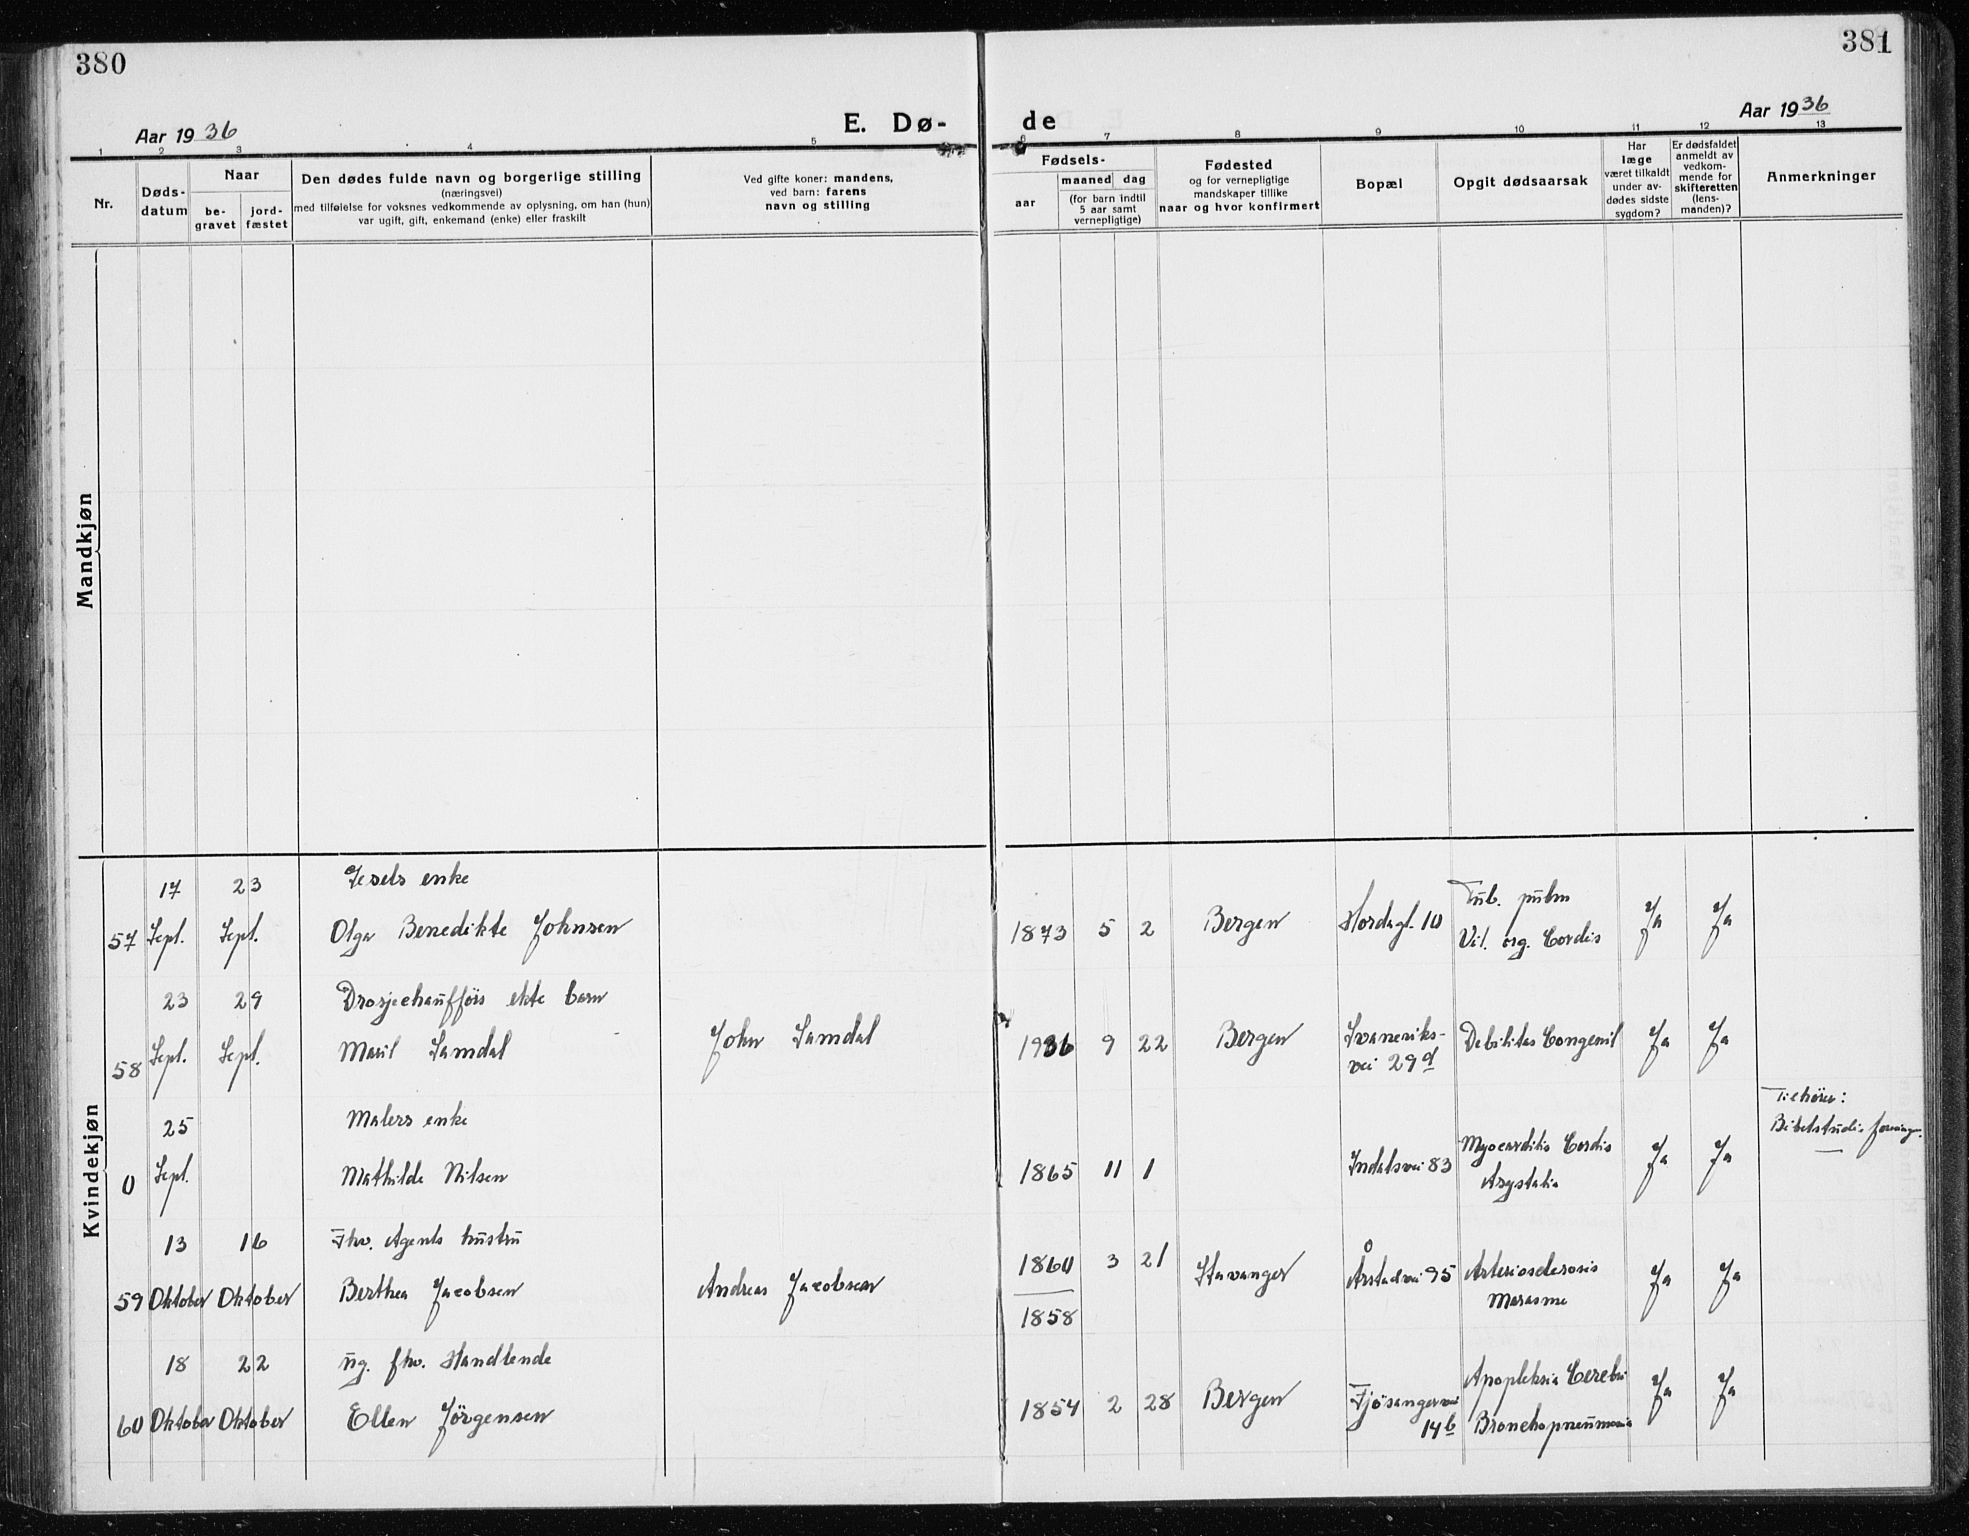 380
381
Aar 1936
E. Dø-
de
Aar 1936
1 2 3 4 5 6 7 8 9 10 11 12 13
Nr.
Døds-
datum
Naar
be-
gravet
jord-
fæstet
Den dødes fulde navn og borgerlige stilling
(næringsvei)
med tilføielse for voksnes vedkommende av oplysning, om han (hun)
var ugift, gift, enkemand (enke) eller fraskilt
Ved gifte koner: mandens,
ved barn: farens
navn og stilling
Fødsels-
aar
maaned dag
(for barn indtil
5 aar samt
vernepligtige)
Fødested
og for vernepligtige
mandskaper tillike
naar og hvor konfirmert
Bopæl
Opgit dødsaarsak
Har
læge
været tilkaldt
under av-
dødes sidste
sygdom?
Er dødsfaldet
anmeldt av
vedkom-
mende for
skifteretten
(lens-
manden)?
Anmerkninger
Mandkjøn
Kvindekjøn
17 23 enke
57 Sept. Sept. Olga Benedikte Johnsen 1873 5 2 Bergen Hordagt. 10 Tub. pulm
Vit. org. Cordis Ja Ja
23 29 Drosjechaufförs ekte barn
58 Sept. Sept. Maril Samdal John Samdal 1936 9 22 Bergen Svaneviks-
vei 29d Debilitas Congenit Ja Ja
25 Malers enke
0 Sept. Mathilde Nilsen 1865 11 1 Indalsvei 83 Myocarditis Cordis
Asystolia Ja Ja
Tilhører:
Bibelstudie
13 16 Fhv. Agents hustru
59 Oktober Oktober Berthea Jacobsen Andreas Jacobsen 1860 3 21 Stavanger Årstadvei 95 Arteriosclerosis
Marasme Ja Ja
1858
18 22 ug. fhv. Handlende
60 Oktober Oktober Ellen Jörgensen 1854 2 28 Bergen Fjösangervei
14b Apopleksia Cerebri
Bronchopneumonia Ja Ja